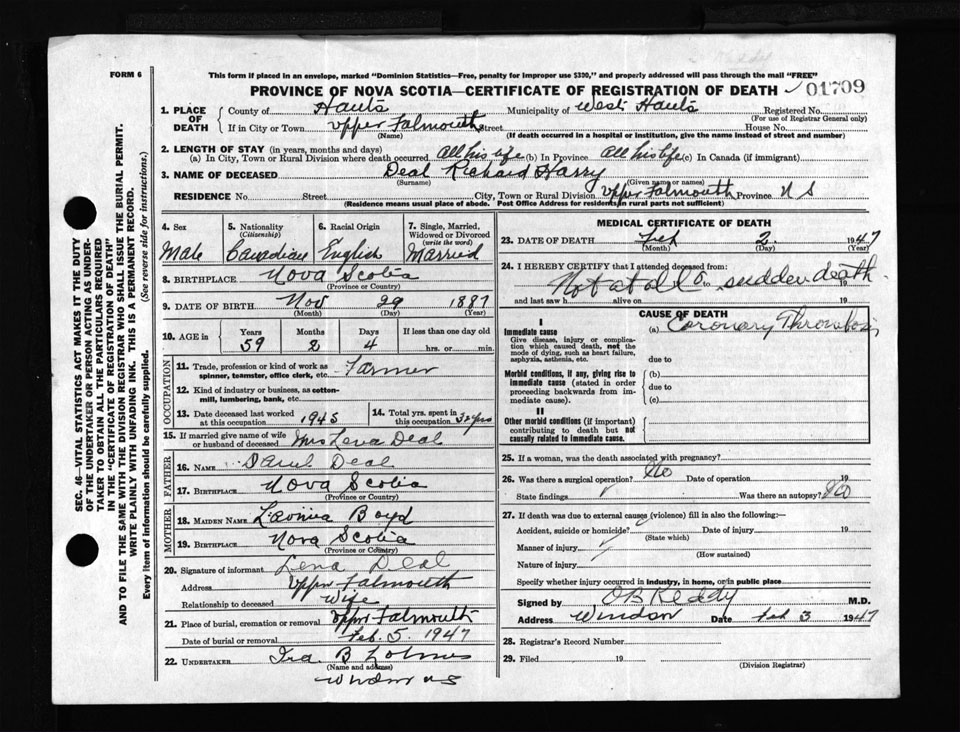 FORM 6
This form if placed in an envelope, marked "Dominion Statistics—Free, penalty for improper use $300," and properly addressed will pass through the mail "FREE"
PROVINCE OF NOVA SCOTIA—CERTIFICATE OF REGISTRATION OF DEATH 01709
1. PLACE OF DEATH County of Hants Municipality of West Hants Registered No.
(For use of Registrar General only)
If in City or Town Upper Falmouth Street House No.
(Name) (If death occurred in a hospital or institution, give the name instead of street and number)
2. LENGTH OF STAY (in years, months and days)
(a) In City, Town or Rural Division where death occurred All his life (b) In Province All his life (c) In Canada (if immigrant)
3. NAME OF DECEASED Deal Richard Harry
(Surname) (Given name or names)
RESIDENCE No. Street City, Town or Rural Division Upper Falmouth Province N S
(Residence means usual place of abode. Post Office Address for residents in rural parts not sufficient)
4. Sex 5. Nationality (Citizenship) 6. Racial Origin 7. Single, Married, Widowed or Divorced (write the word)
Male Canadian English Married
8. BIRTHPLACE Nova Scotia
(Province or Country)
9. DATE OF BIRTH Nov 29 1887
(Month) (Day) (Year)
10. AGE in Years Months Days If less than one day old
59 2 4 hrs. or min.
OCCUPATION
11. Trade, profession or kind of work as spinner, teamster, office clerk, etc. Farmer
12. Kind of industry or business, as cotton-mill, lumbering, bank, etc.
13. Date deceased last worked at this occupation 1945 14. Total yrs. spent in this occupation
15. If married give name of wife or husband of deceased Mrs Lena Deal
FATHER
16. NAME Deal
17. BIRTHPLACE Nova Scotia
(Province or Country)
MOTHER
18. MAIDEN NAME Lavinia Boyd
19. BIRTHPLACE Nova Scotia
(Province or Country)
20. Signature of informant Lena Deal
Address Upper Falmouth
Relationship to deceased Wife
21. Place of burial, cremation or removal Upper Falmouth
Date of burial or removal Feb. 5. 1947
22. UNDERTAKER Ira B
(Name and address)
Windsor NS
MEDICAL CERTIFICATE OF DEATH
23. DATE OF DEATH Feb 2 1947
(Month) (Day) (Year)
24. I HEREBY CERTIFY that I attended deceased from:
Not at all 19 to sudden death 19
and last saw h alive on 19
CAUSE OF DEATH
I
Immediate cause (a) Coronary Thrombosis
Give disease, injury or complication which caused death, not the mode of dying, such as heart failure, asphyxia, asthenia, etc. due to
Morbid conditions, if any, giving rise to immediate cause (stated in order proceeding backwards from immediate cause). (b)
due to
(c)
II
Other morbid conditions (if important) contributing to death but not causally related to immediate cause.
25. If a woman, was the death associated with pregnancy?
26. Was there a surgical operation? No Date of operation 19
State findings Was there an autopsy? No
27. If death was due to external causes (violence) fill in also the following:
Accident, suicide or homicide? Date of injury 19
(State which)
Manner of injury
(How sustained)
Nature of injury
Specify whether injury occurred in industry, in home, or in public place
Signed by O B Keddy M.D.
Address Windsor Date Feb 3 1947
28. Registrar's Record Number
29. Filed 19
(Division Registrar)
SEC. 46—VITAL STATISTICS ACT MAKES IT THE DUTY
OF THE UNDERTAKER OR PERSON ACTING AS UNDER-
TAKER TO OBTAIN ALL THE PARTICULARS REQUIRED
IN THE "CERTIFICATE OF REGISTRATION OF DEATH"
AND TO FILE THE SAME WITH THE DIVISION REGISTRAR WHO SHALL ISSUE THE BURIAL PERMIT.
WRITE PLAINLY WITH UNFADING INK. THIS IS A PERMANENT RECORD.
Every item of information should be carefully supplied. (See reverse side for instructions.)